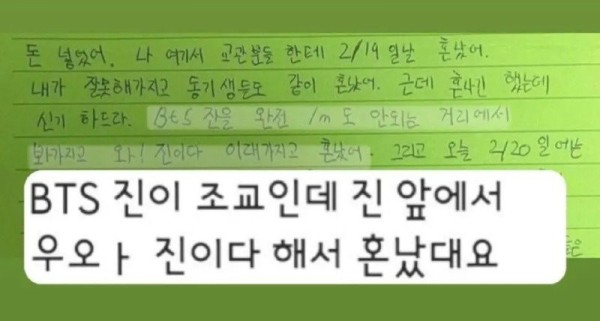 돈 넣었어. 나 여기서 교관분들 한테 2/19 일날 혼났어.
내가 잘못해가지고 동기생들도 같이 혼났어. 근데 혼나긴 했는데
신기 하드라. Bts 진을 완전 1m 도 안되는 거리에서
봐가지고 와! 진이다 이래가지고 혼났어. 그리고 오늘 2/20 일
BTS 진이 조교인데 진 앞에서
우오ㅏ 진이다 해서 혼났대요